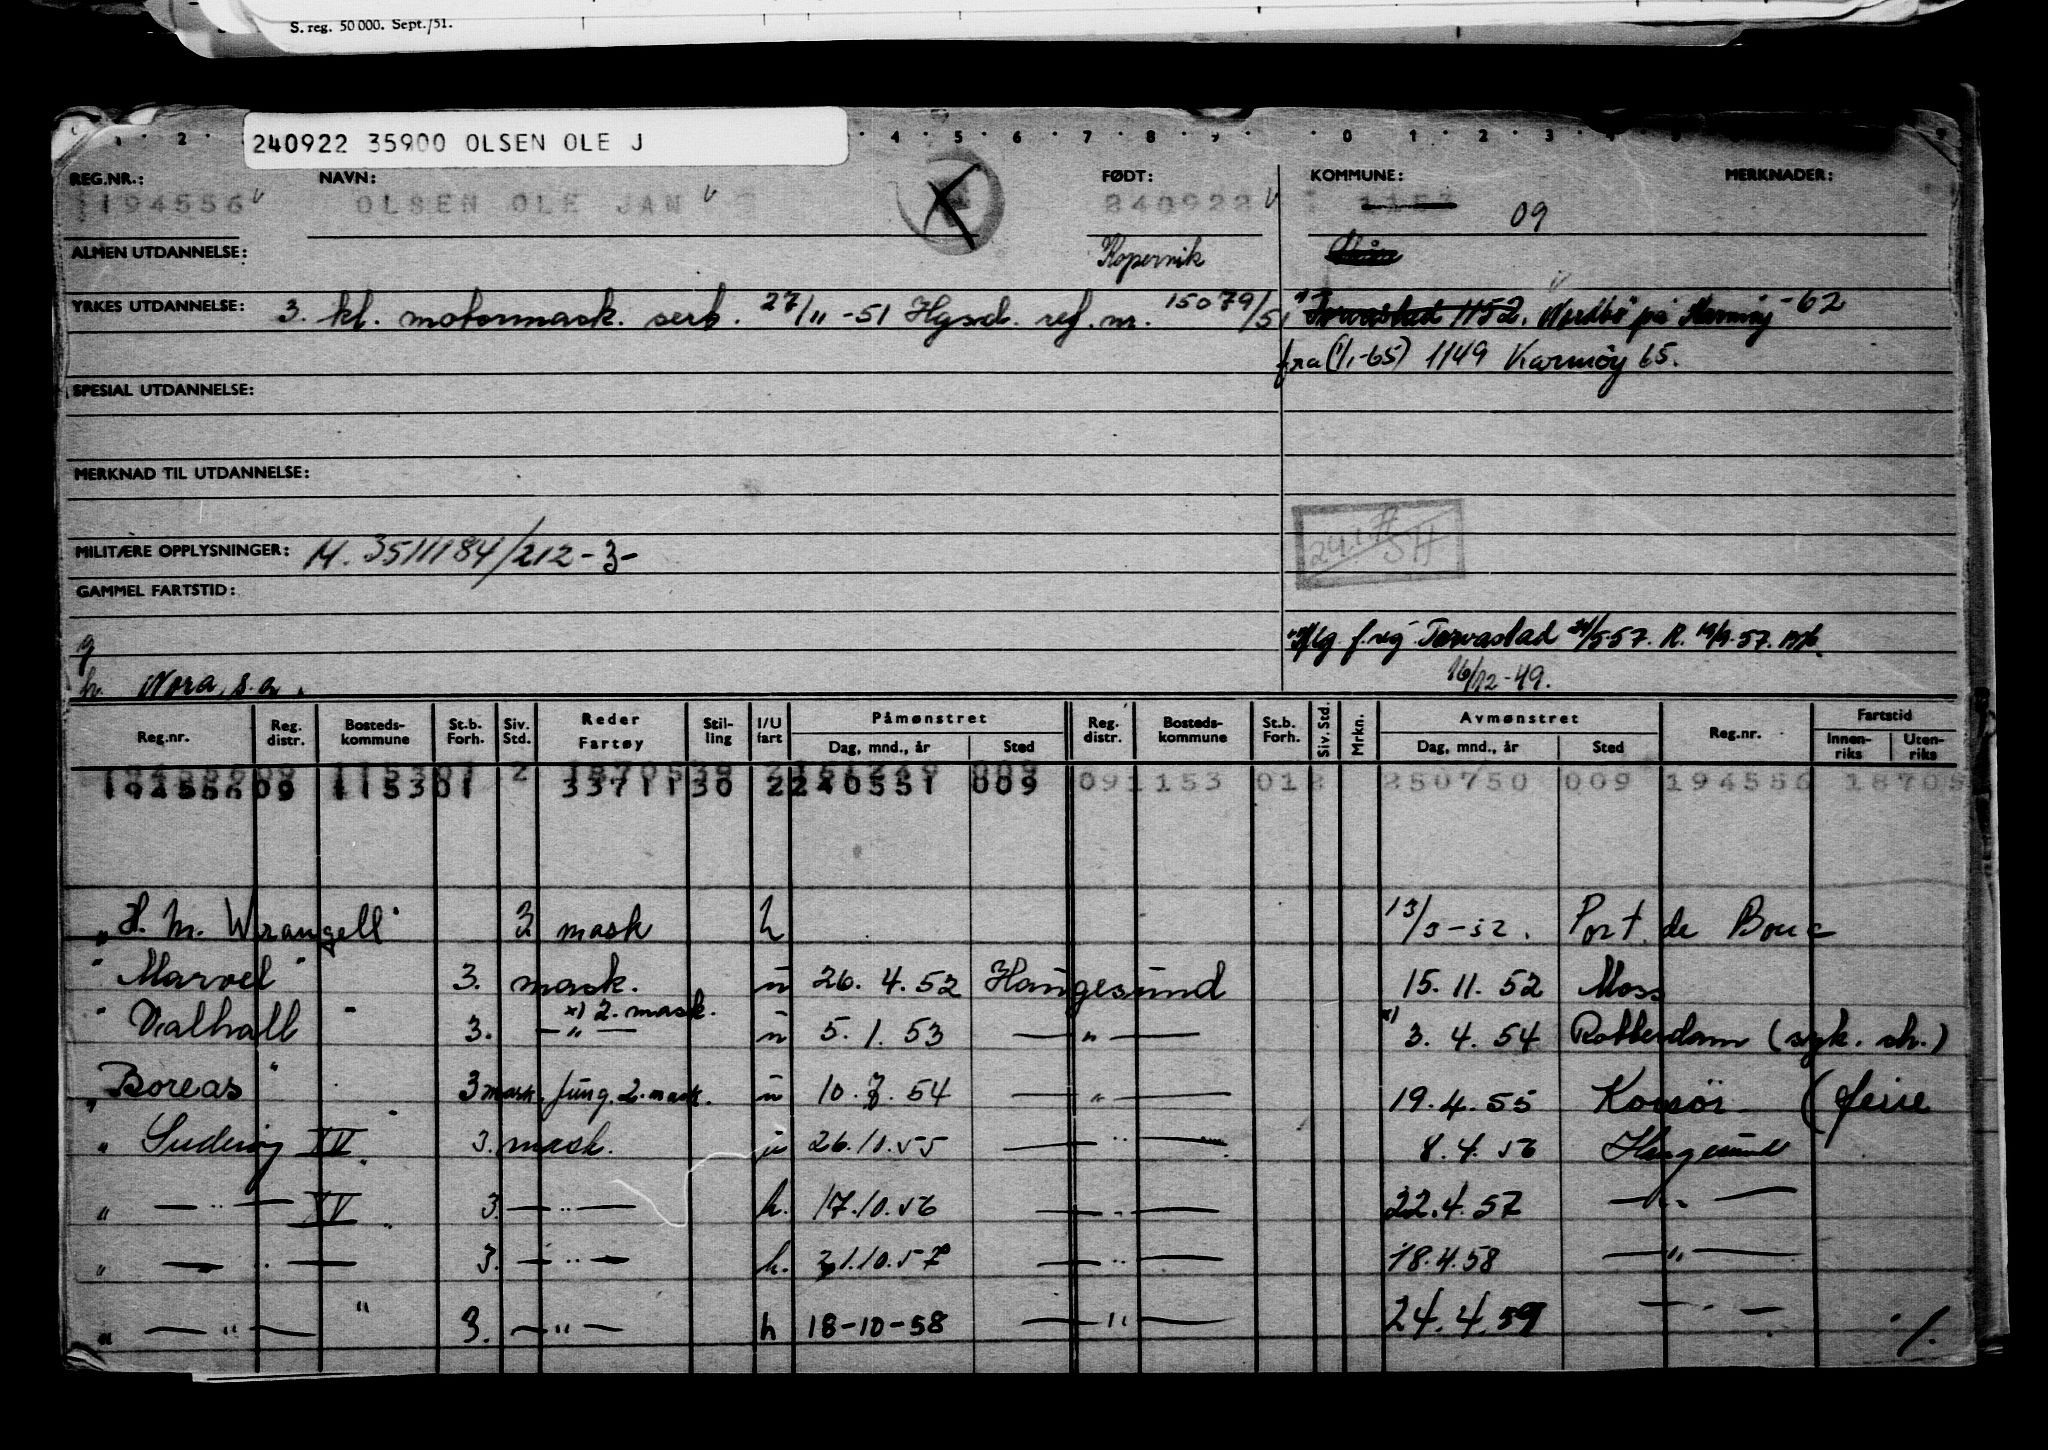 S. reg. 50 000. Sept./51.
240922 35900 OLSEN OLE J
1 2 4 5 6 7 8 9 0 1 2 3 4
REG.NR.: NAVN: FØDT: KOMMUNE: MERKNADER:
194556 OLSEN OLE JAN 240922 1153 09
ALMEN UTDANNELSE: Kopervik
YRKES UTDANNELSE: 3. kl. motormask. serb. 27/11-51 Hgsd. ref. nr. 15079/51 Torvastad 1152. Nordbö på Karmöy -62
fra (1/1-65) 1149 Karmöy 65.
SPESIAL UTDANNELSE:
MERKNAD TIL UTDANNELSE:
MILITÆRE OPPLYSNINGER: M. 3511184/212-3-
GAMMEL FARTSTID:
g f. reg. Torvastad 5-57. R. 57.
h. Nora, s.a. 16/12-49.
Reg.nr. Reg. distr. Bosteds- kommune St.b. Forh. Siv. Std. Reder Fartøy Stil- ling I/U fart Påmønstret Dag, mnd., år Sted Reg. distr. Bosteds- kommune St.b. Forh. Siv. Std. Mrkn. Avmønstret Dag, mnd., år Sted Reg.nr. Fartstid Innen- riks Uten- riks
194556 09 1153 01 33711 30 2 240551 009 09 1153 01 2 250750 009 194556 18705
"H. M. Wrangell" 3 mask h 13/3-52. Port de Bouc
"Marvel" 3. mask. u 26.4.52 Haugesund 15.11.52 Moss
x) 2. mask.
"Valhall" 3. — " — u 5.1.53 — " — x) 3.4.54 Rotterdam (syk. sh.)
"Boreas" 3 mask. fung. 2. mask. u 10.7.54 — " — 19.4.55 Korsör (ferie
" Suderøy XV" 3. mask. u 26.10.55 — " — 8.4.56 Haugesund
" — " — XV " 3. — " — h. 17.10.56 — " — 22.4.57 — " —
" — " — 3. — " — h. 21.10.57 — " — 18.4.58 — " —
" — " — " 3. — " — h 18-10-58 — " — 24.4.59 — " — ./.